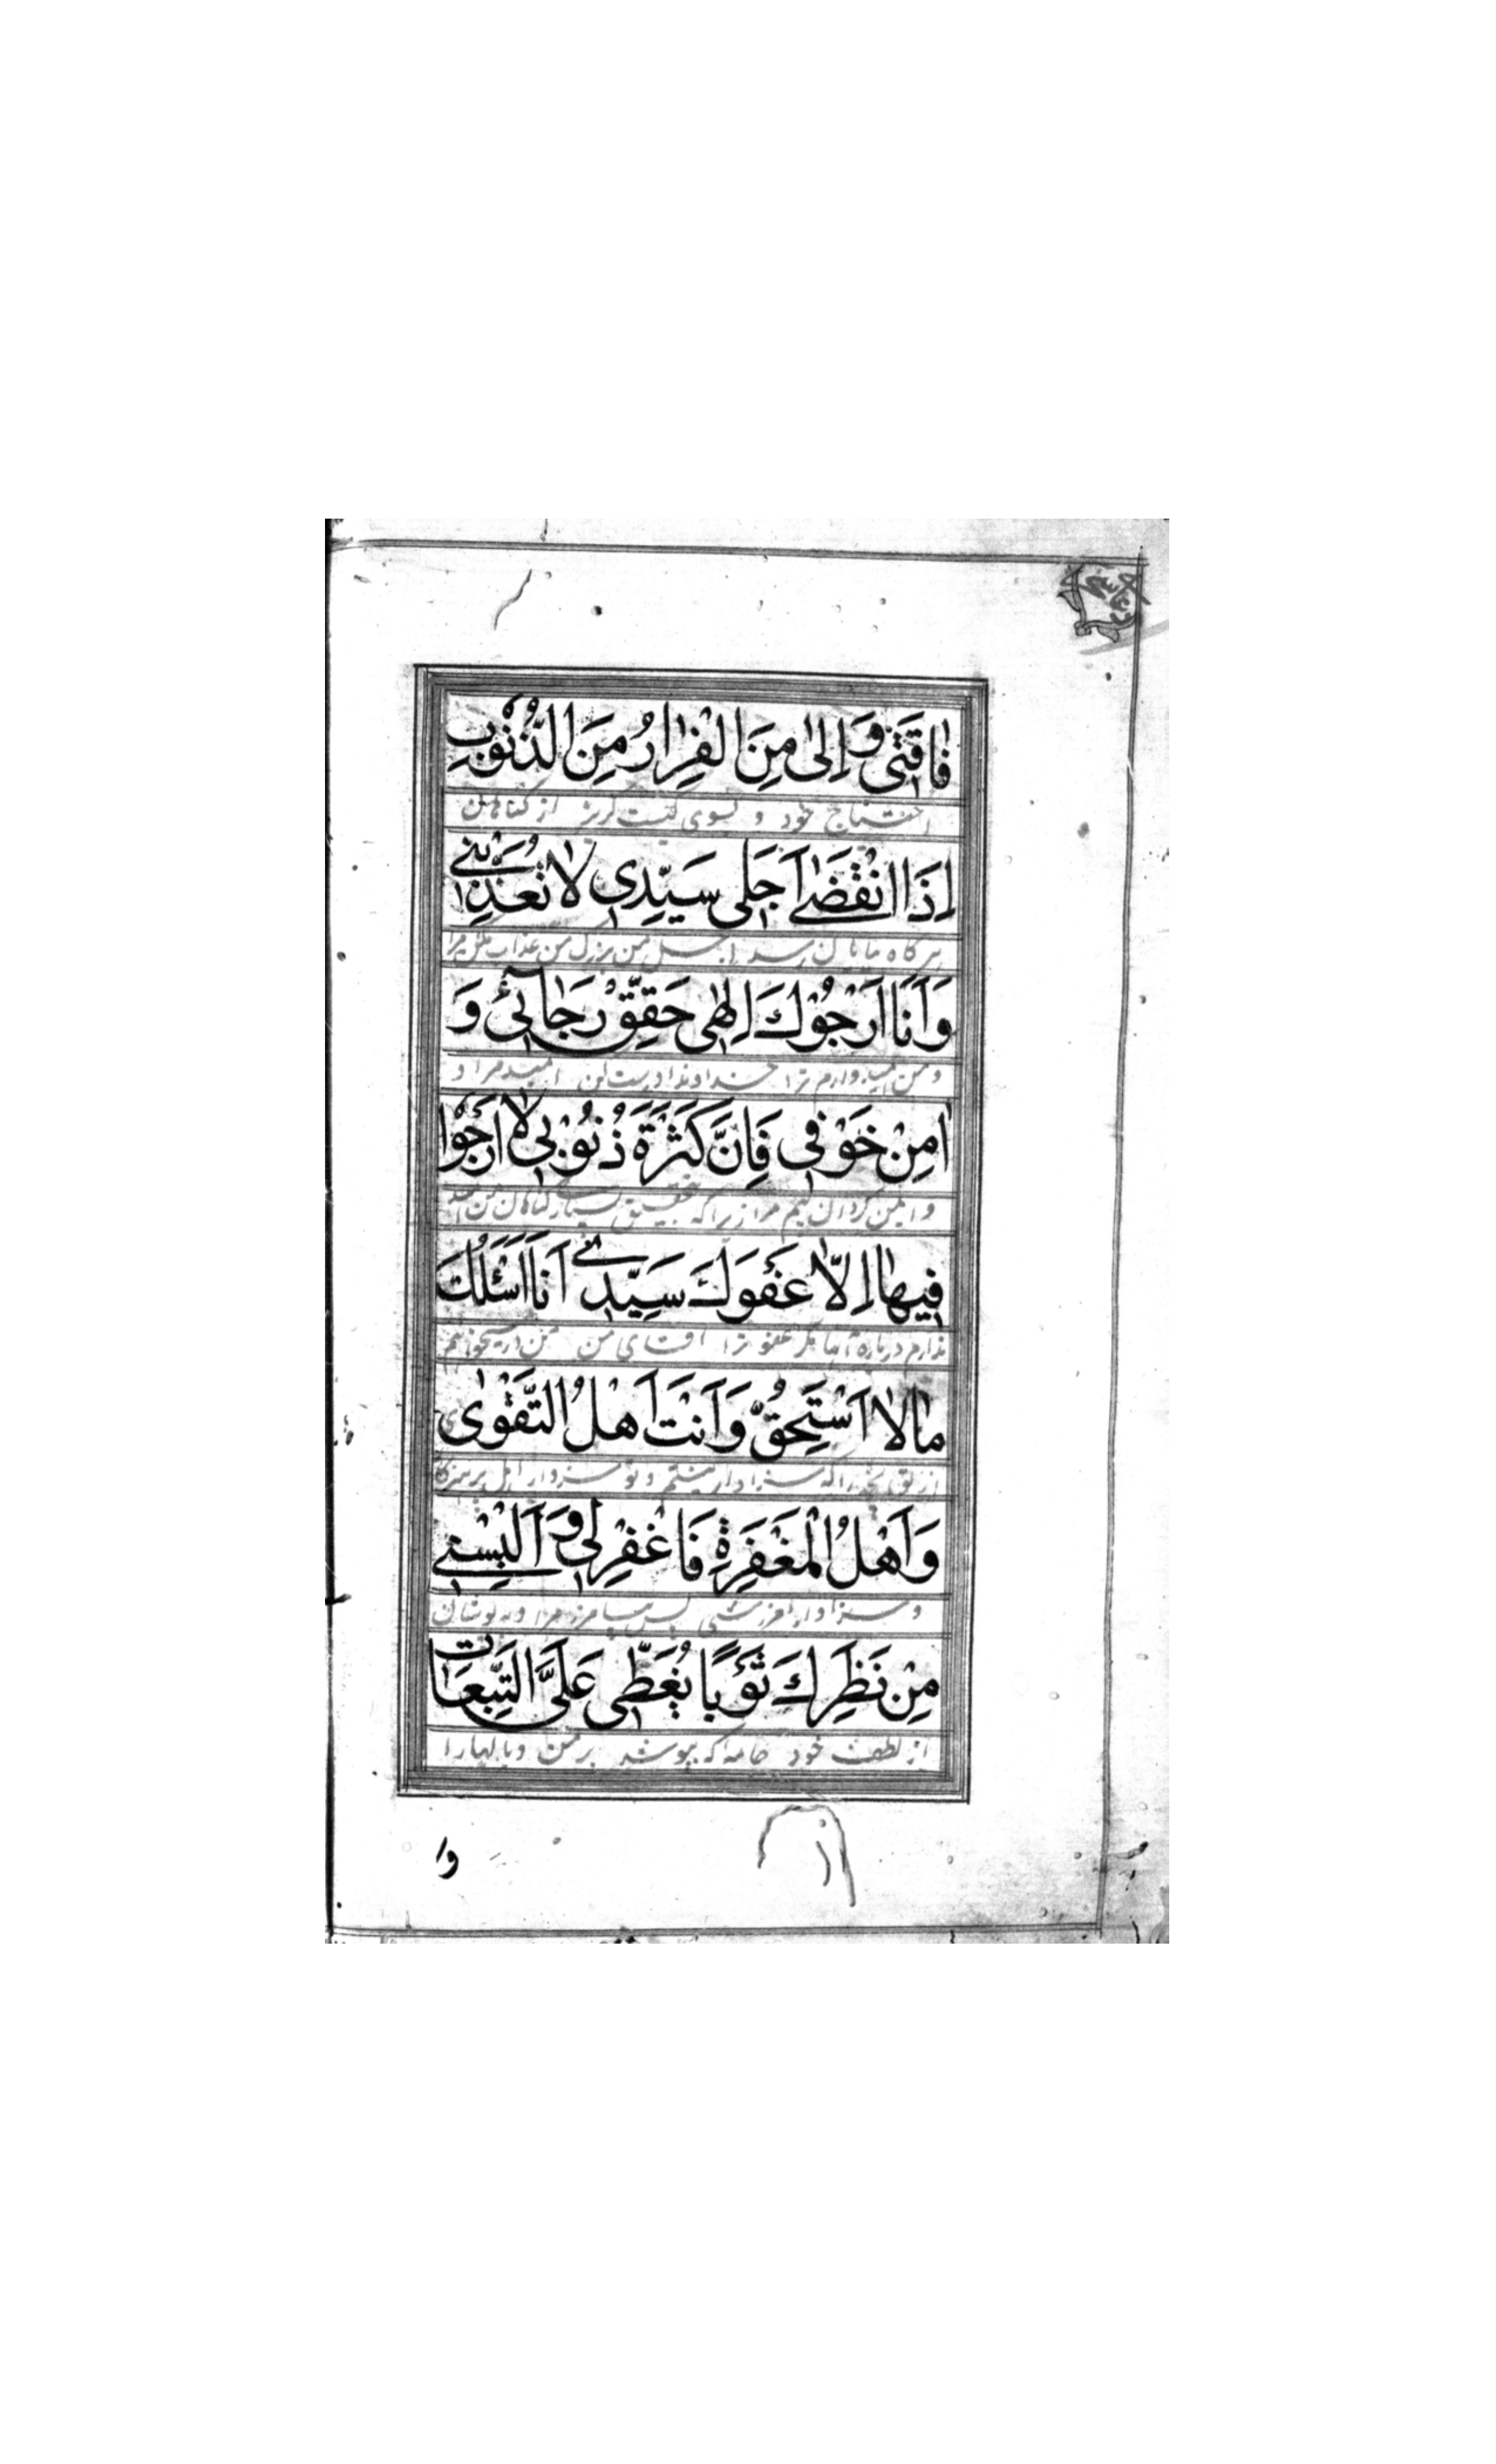 فٰاقَتٖى وَاِلىٰ مِنَ الْفِرٰارُ مِنَ الذُّنُوْبِ
احتیاج خود و بسوی کیست گریز از گناهان
اِذَا انْقَضٰى اَجَلٖى سَيِّدِى لاٰ تُعَذِّبْنٖى
هرگاه بپایان رسد اجل من بزرگ من عذاب مکن مرا
وَاَنَا اَرْجُوْكَ اِلٰهٖى حَقِّقْ رَجٰآئٖى وَ
و من امیدوارم ترا خداوندا درست کن امید مرا و
اٰمِنْ خَوْفٖى فَاِنَّ كَثْرَةَ ذُنُوْبٖى لاٰ اَرْجُوْا
و ایمن گردان بیم مرا زیرا که بتحقیق بسیار گناهان من امید
فٖيهٰا اِلاّٰ عَفْوَكَ سَيِّدٖى اَنَا اَسْئَلُكَ
ندارم درباره آنها مگر عفو ترا آقای من من درمیخواهم
مٰا لاٰ اَسْتَحِقُّ وَاَنْتَ اَهْلُ التَّقْوٰى
از تو آنچه را که سزاوار نیستم و تو سزاوار اهل
وَاَهْلُ الْمَغْفِرَةِ فَاغْفِرْ لٖى وَاَلْبِسْنٖى
و سزاوار آمرزشی پس بیامرز مرا و بپوشان
مِنْ نَظَرِكَ ثَوْبًا يُغَطّٖى عَلَىَّ التَّبِعٰاتِ
از لطف خود جامه که بپوشد بر من وبالها را
وَا